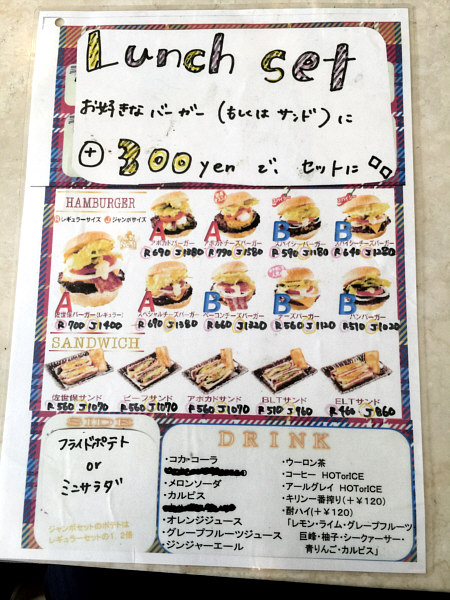 Lunch set
お好きなバーガー(もしくはサンド)に
⊕300yenで、セットに
HAMBURGER
R レギュラーサイズ J ジャンボサイズ
A A B B
アボカドバーガー アボカドチーズバーガー スパイシーバーガー スパイシーチーズバーガー
R690 J1380 R790 J1580 R590 J1180 R640 J1280
A A B B B
佐世保バーガー(レギュラー) スペシャルチーズバーガー ベーコンチーズバーガー チーズバーガー ハンバーガー
R700 J1400 R690 J1380 R660 J1320 R560 J1120 R510 J1020
SANDWICH
佐世保サンド ビーフサンド アボカドサンド BLTサンド ELTサンド
R560 J1070 R560 J1070 R560 J1070 R510 J960 R460 J860
SIDE
フライドポテト
or
ミニサラダ
ジャンボセットのポテトは
レギュラーセットの1.2倍
DRINK
・コカ・コーラ
・メロンソーダ
・カルピス
・オレンジジュース
・グレープフルーツジュース
・ジンジャーエール
・ウーロン茶
・コーヒー HOTorICE
・アールグレイ HOTorICE
・キリン一番搾り(+¥120)
・酎ハイ(+¥120)
「レモン・ライム・グレープフルーツ
巨峰・柚子・シークァーサー・
青りんご・カルピス」